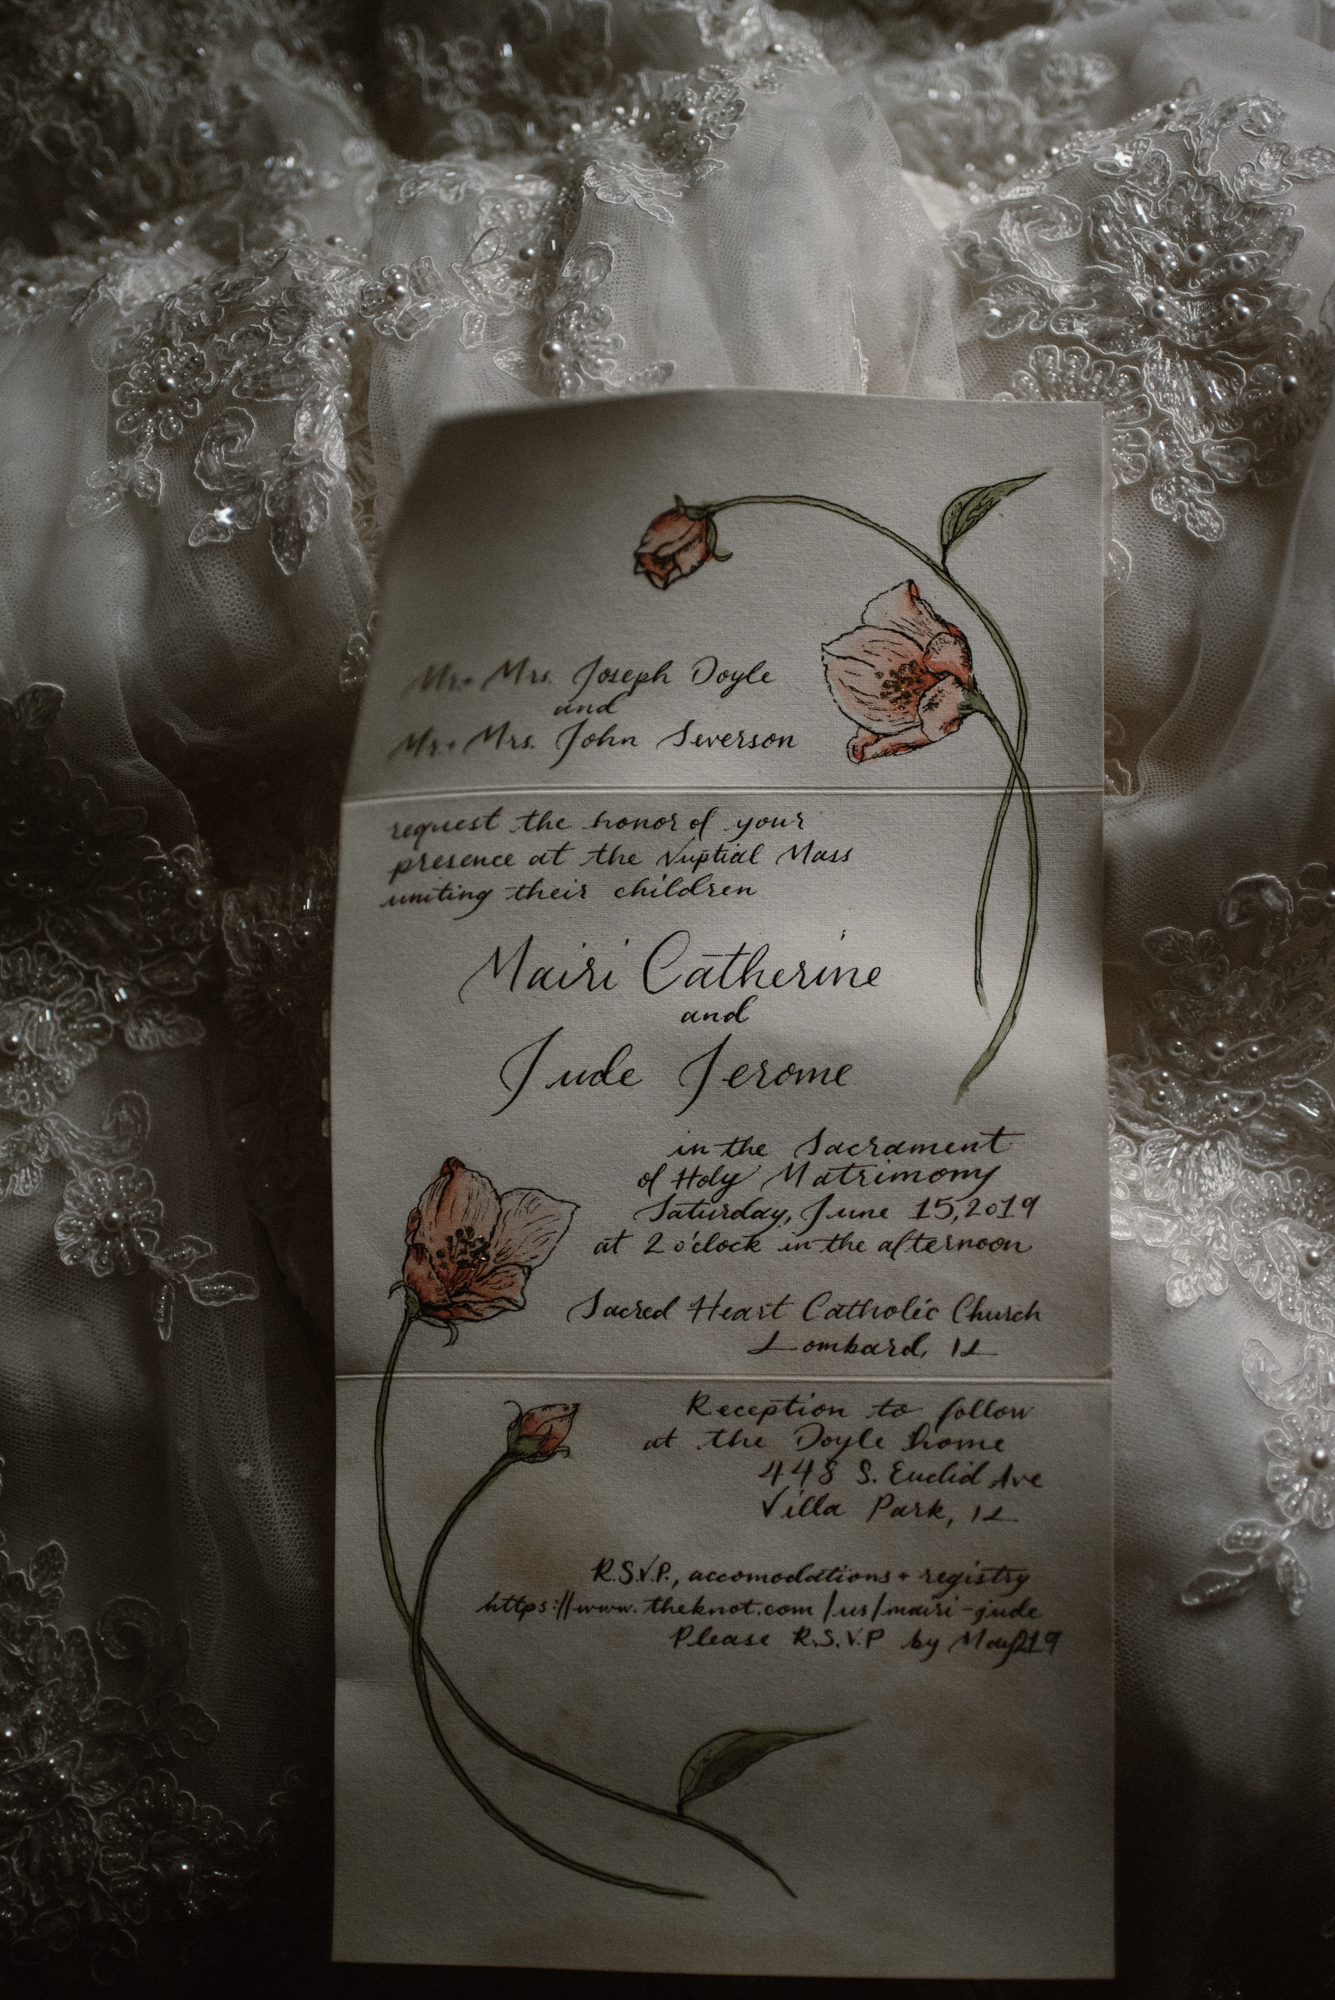 Mr. + Mrs. Joseph Doyle
and
Mr. + Mrs. John Severson
request the honor of your
presence at the Nuptial Mass
uniting their children
Mairi Catherine
and
Jude Jerome
in the Sacrament
of Holy Matrimony
Saturday, June 15, 2019
at 2 o'clock in the afternoon
Sacred Heart Catholic Church
Lombard, IL
Reception to follow
at the Doyle home
448 S. Euclid Ave
Villa Park, IL
R.S.V.P., accomodations + registry
https://www.theknot.com/us/mairi-jude
Please R.S.V.P by May